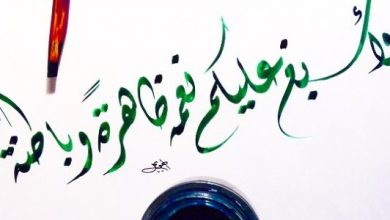 وأسبغ عليكم نعمه ظاهرةً وباطنة